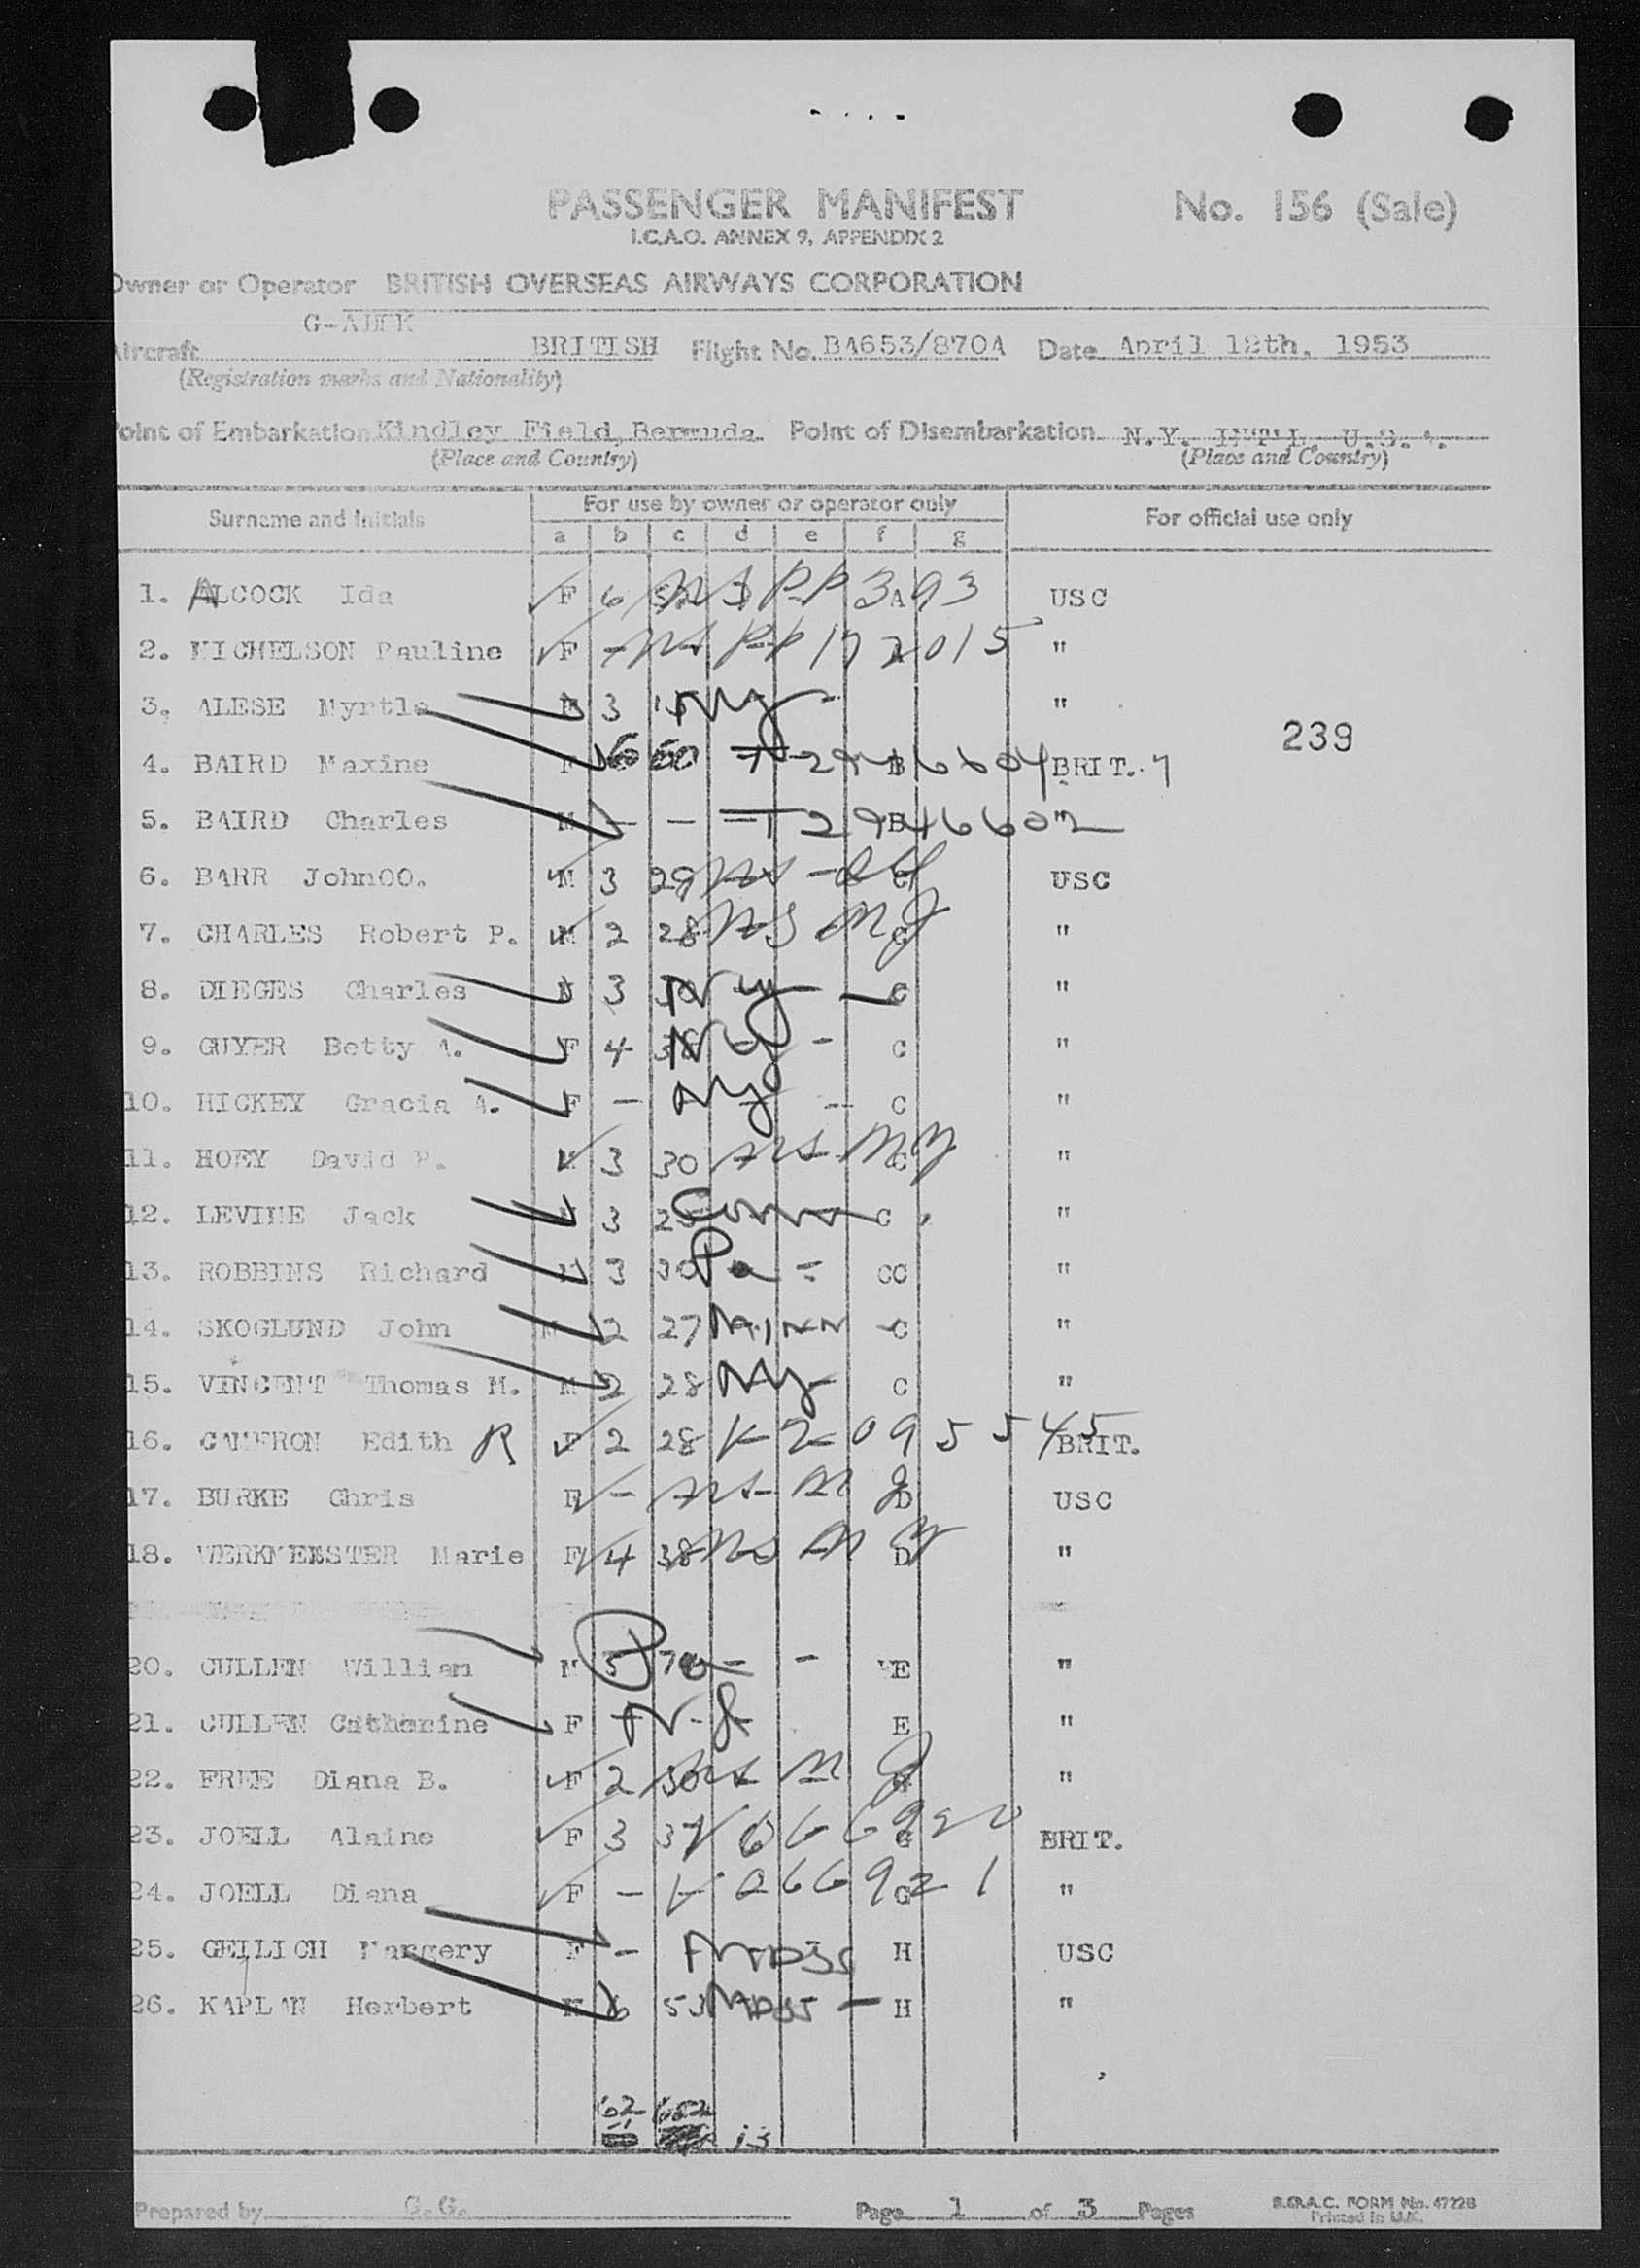 PASSENGER MANIFEST No. 156 (Sale)
I.C.A.O. ANNEX 9, APPENDIX 2
Owner or Operator BRITISH OVERSEAS AIRWAYS CORPORATION
Aircraft BRITISH Flight No. BA653/870A Date April 12th, 1953
(Registration marks and Nationality)
Point of Embarkation Kindley Field, Bermuda Point of Disembarkation N.Y. INT'L U.S.A.
(Place and Country) (Place and Country)
Surname and Initials For use by owner or operator only For official use only
a b c d e f g
1. ALCOCK Ida F 6 PP 3 A 93 USC
2. MICHELSON Pauline F - PP 17 2015 "
3. ALESE Myrtle F 3 NY - "
239
4. BAIRD Maxine F 6 60 B BRIT.
5. BAIRD Charles M - - T 2946602 B "
6. BARR JohnOO. M 3 29 C USC
7. CHARLES Robert P. M 2 28 NS C "
8. DIEGES Charles M 3 NY - C "
9. GUYER Betty A. F 4 38 NY - C "
10. HICKEY Gracia A. F - NY - C "
11. HOEY David P. M 3 30 C "
12. LEVINE Jack M 3 Conn C "
13. ROBBINS Richard M 3 30 Pa - CC "
14. SKOGLUND John M 2 27 MINN - C "
15. VINCENT Thomas M. M 2 28 NY C "
16. CAMERON Edith R F 2 28 K 2 0955 45 BRIT.
17. BURKE Chris F - D USC
18. WERKMEESTER Marie F 4 38 D "
20. CULLEN William M 5 Pa - - E "
21. CULLEN Catherine F N.J. E "
22. FREE Diana B. F 2 30 "
23. JOELL Alaine F 3 37 G BRIT.
24. JOELL Diana F - V 066921 G "
25. GEILICH Margery F - MASS H USC
26. KAPLAN Herbert M 6 53 MASS - H "
62 652
13
Prepared by G.G. Page 1 of 3 Pages B.O.A.C. FORM No. 4722B
Printed in U.K.